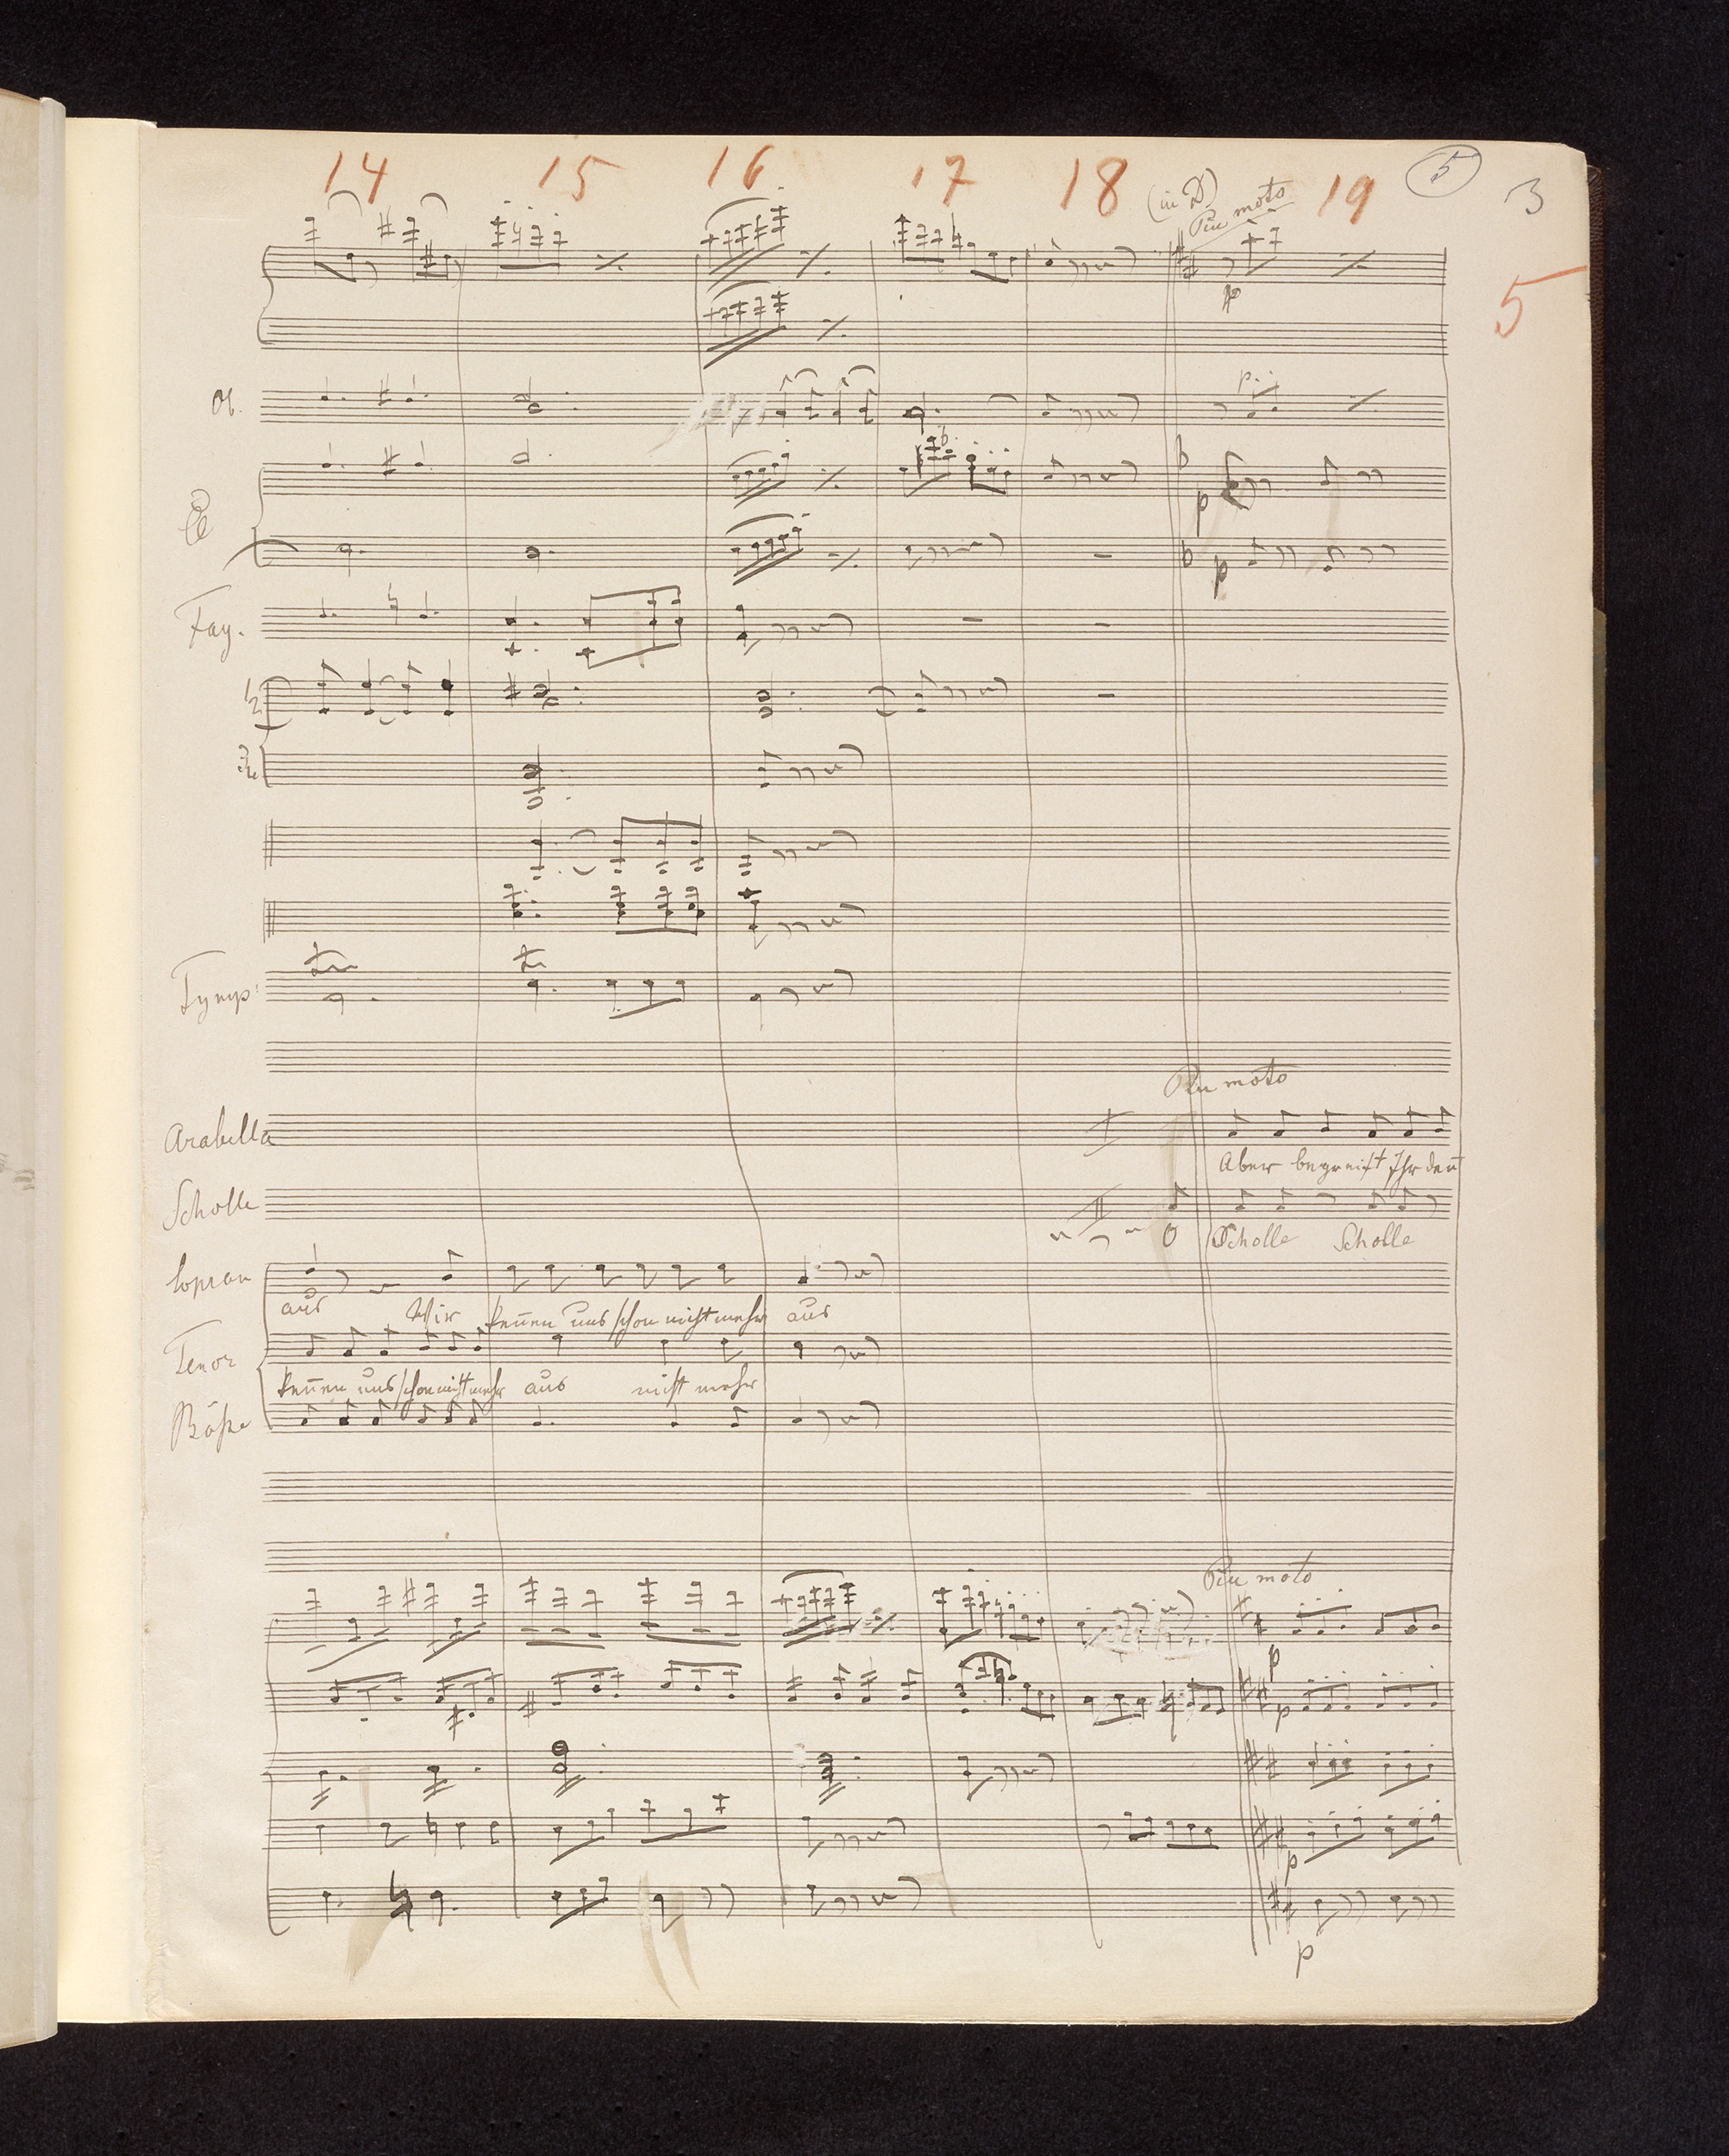 14 15 16 17 18 19
5 3
(in D)
Piu moto
5
p
Ob.
p
p
p
Fag.
1
2
3
4
tr tr
Tymp:
Piu moto
Arabella
Aber begreift Ihr den
Scholle
I
II
O Scholle Scholle
Sopran
aus Wir kenen uns schon nicht mehr aus
Tenor
kenen uns schon nicht mehr aus nicht mehr
Bäße
Piu moto
p
p
p
p